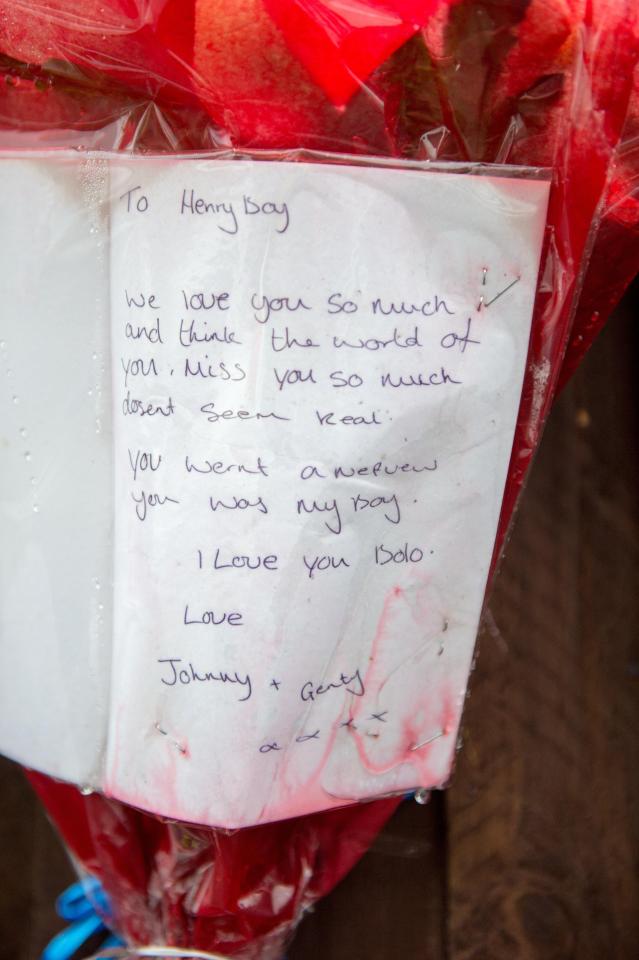 To Henry Boy
we love you so much
and think the world of
you. Miss you so much
dosent seem real.
you wernt a nefuew
you was my Boy.
I Love you Bolo.
Love
Johnny + Genty
x x x x